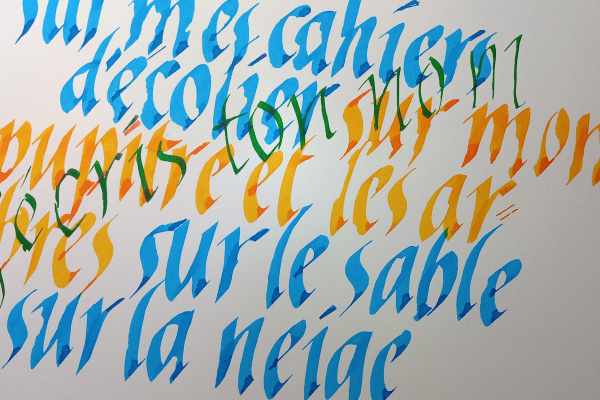 sur mes cahiers
d'écolier sur mon
pupitre et les ar
bres sur le sable
sur la neige
j'écris ton nom